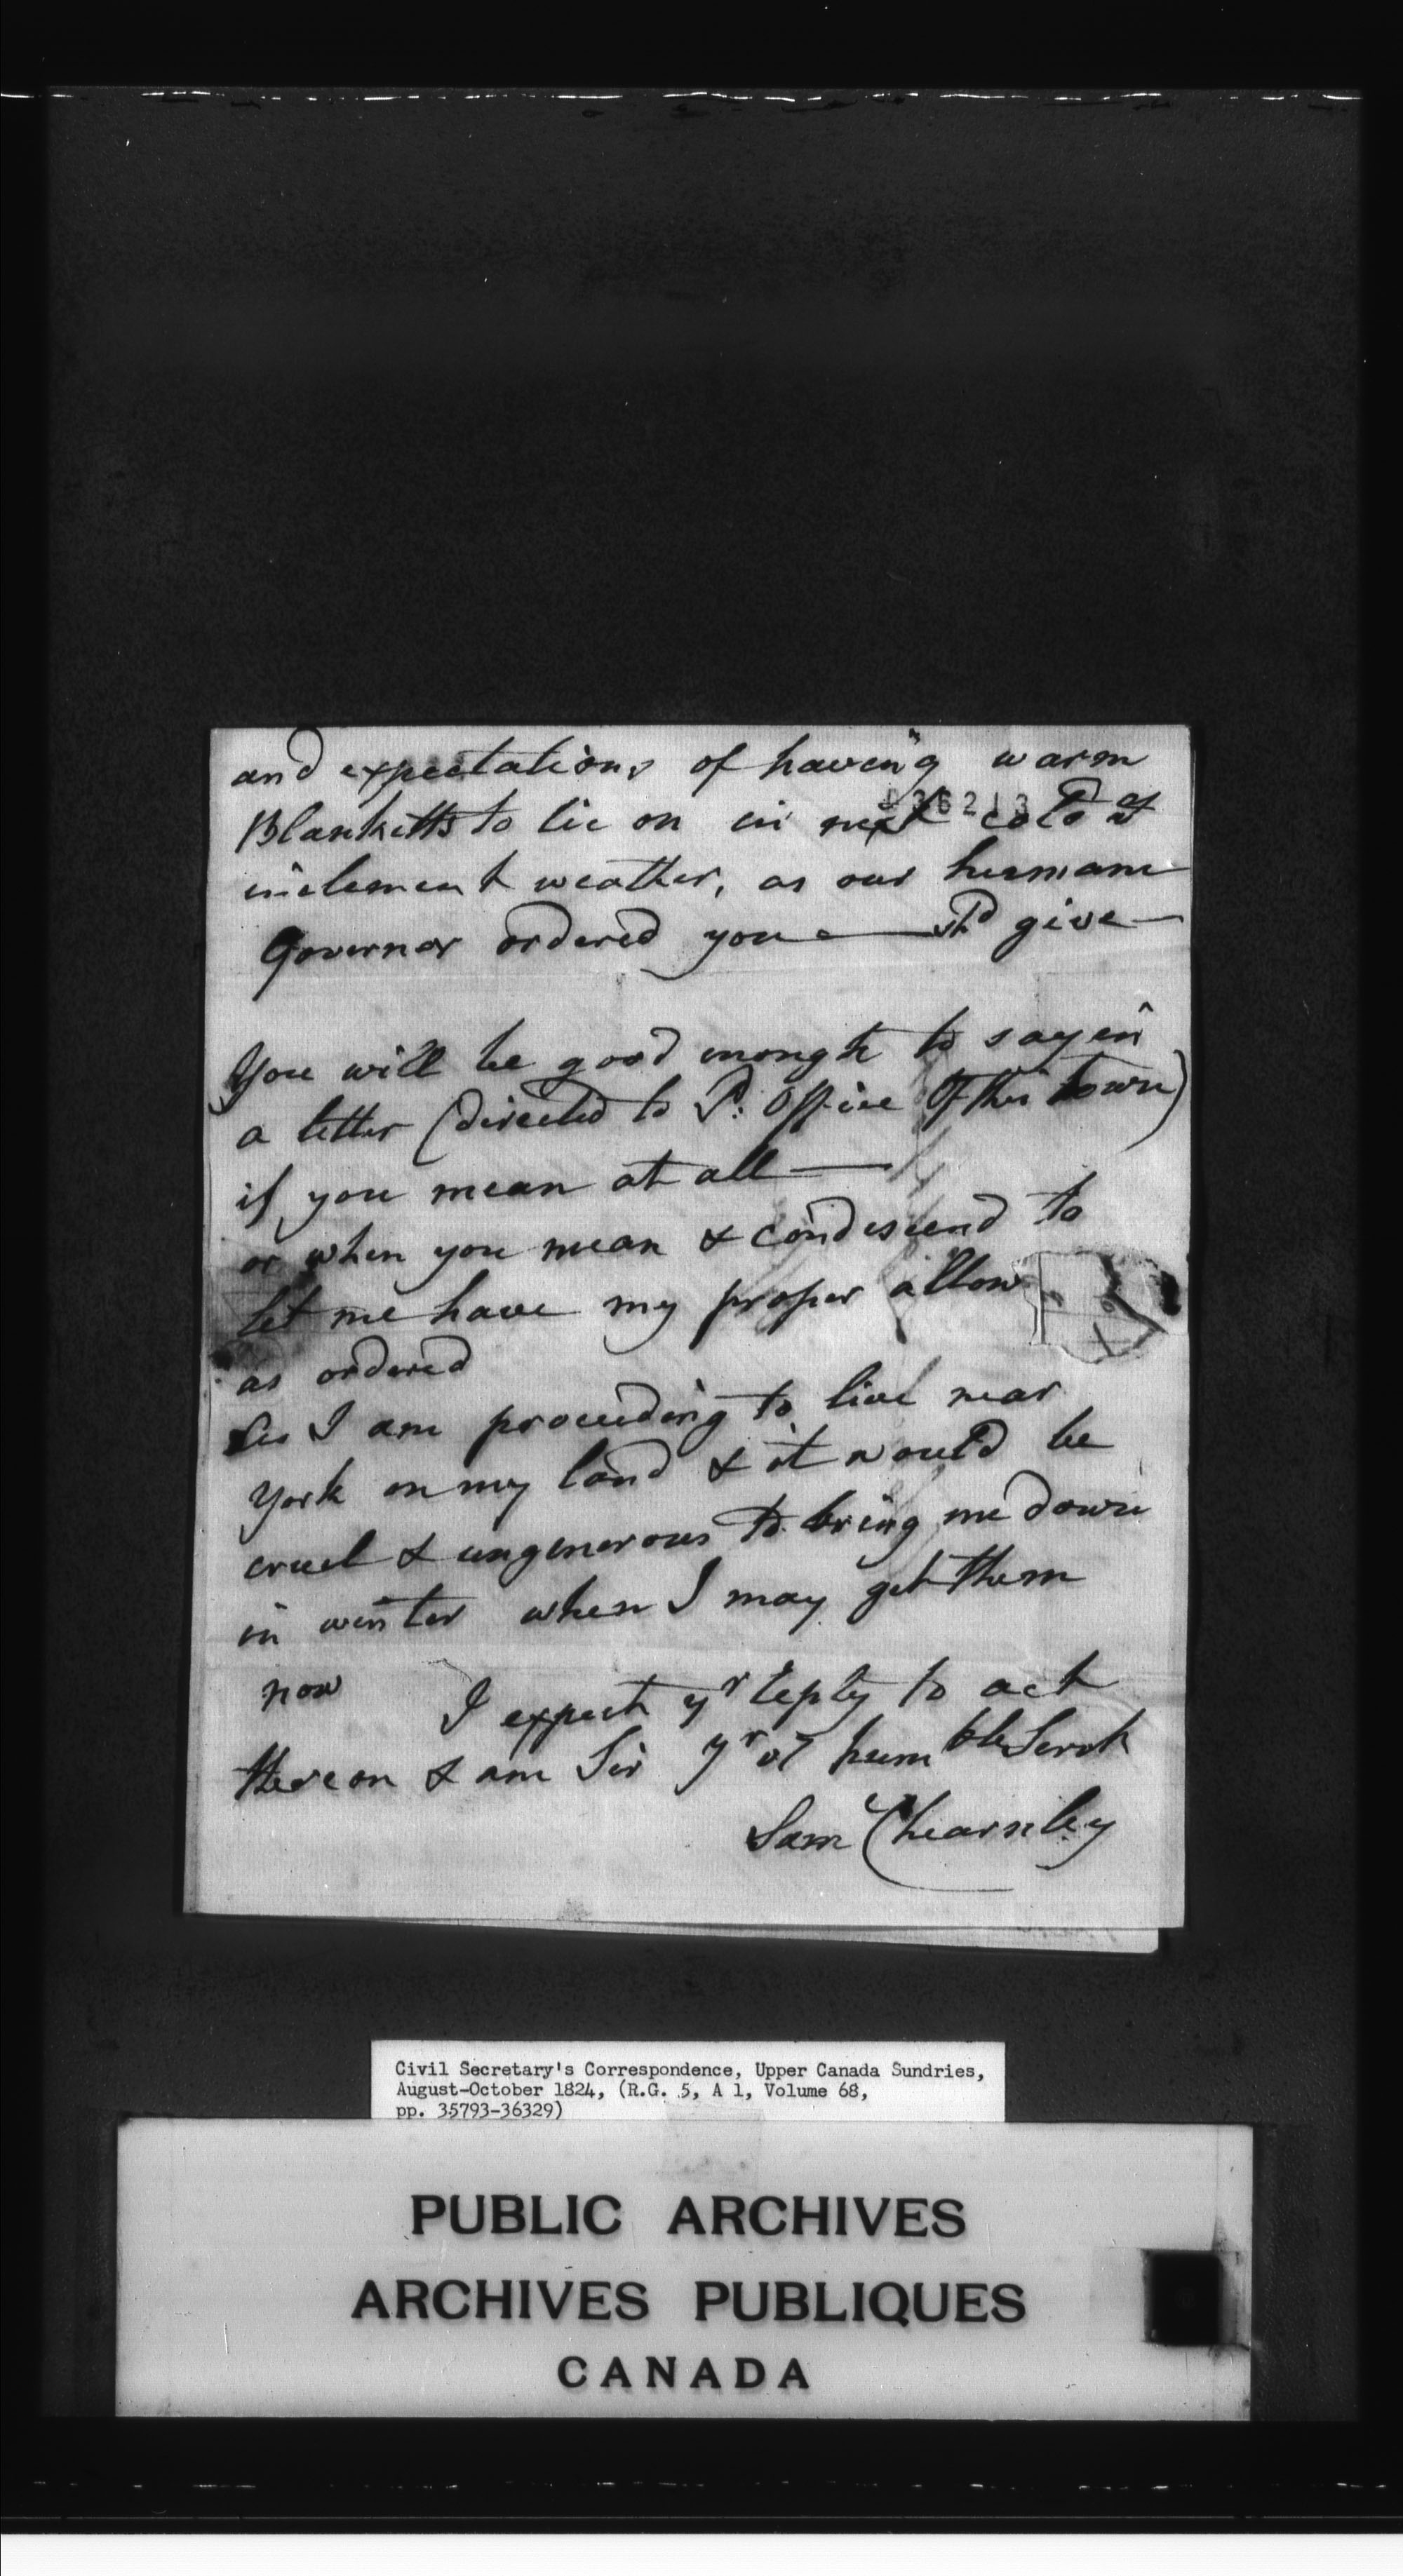 and expectations of having warm
036213
Blanketts to lie on in next cold &
inclement weather, as our humane
Governor ordered you shd give
You will be good enough to say in
a letter (directed to P: Office of this town)
if you mean at all —
or when you mean & condescend to
let me have my proper allow
as ordered
Sir I am proceeding to live near
York on my land & it would be
cruel & ungenerous to bring me down
in winter when I may get them
now I expect yr reply to act
thereon & am Sir yr ot humble Servt
Sam Chearnley
Civil Secretary's Correspondence, Upper Canada Sundries,
August-October 1824, (R.G. 5, A 1, Volume 68,
pp. 35793-36329)
PUBLIC ARCHIVES
ARCHIVES PUBLIQUES
CANADA